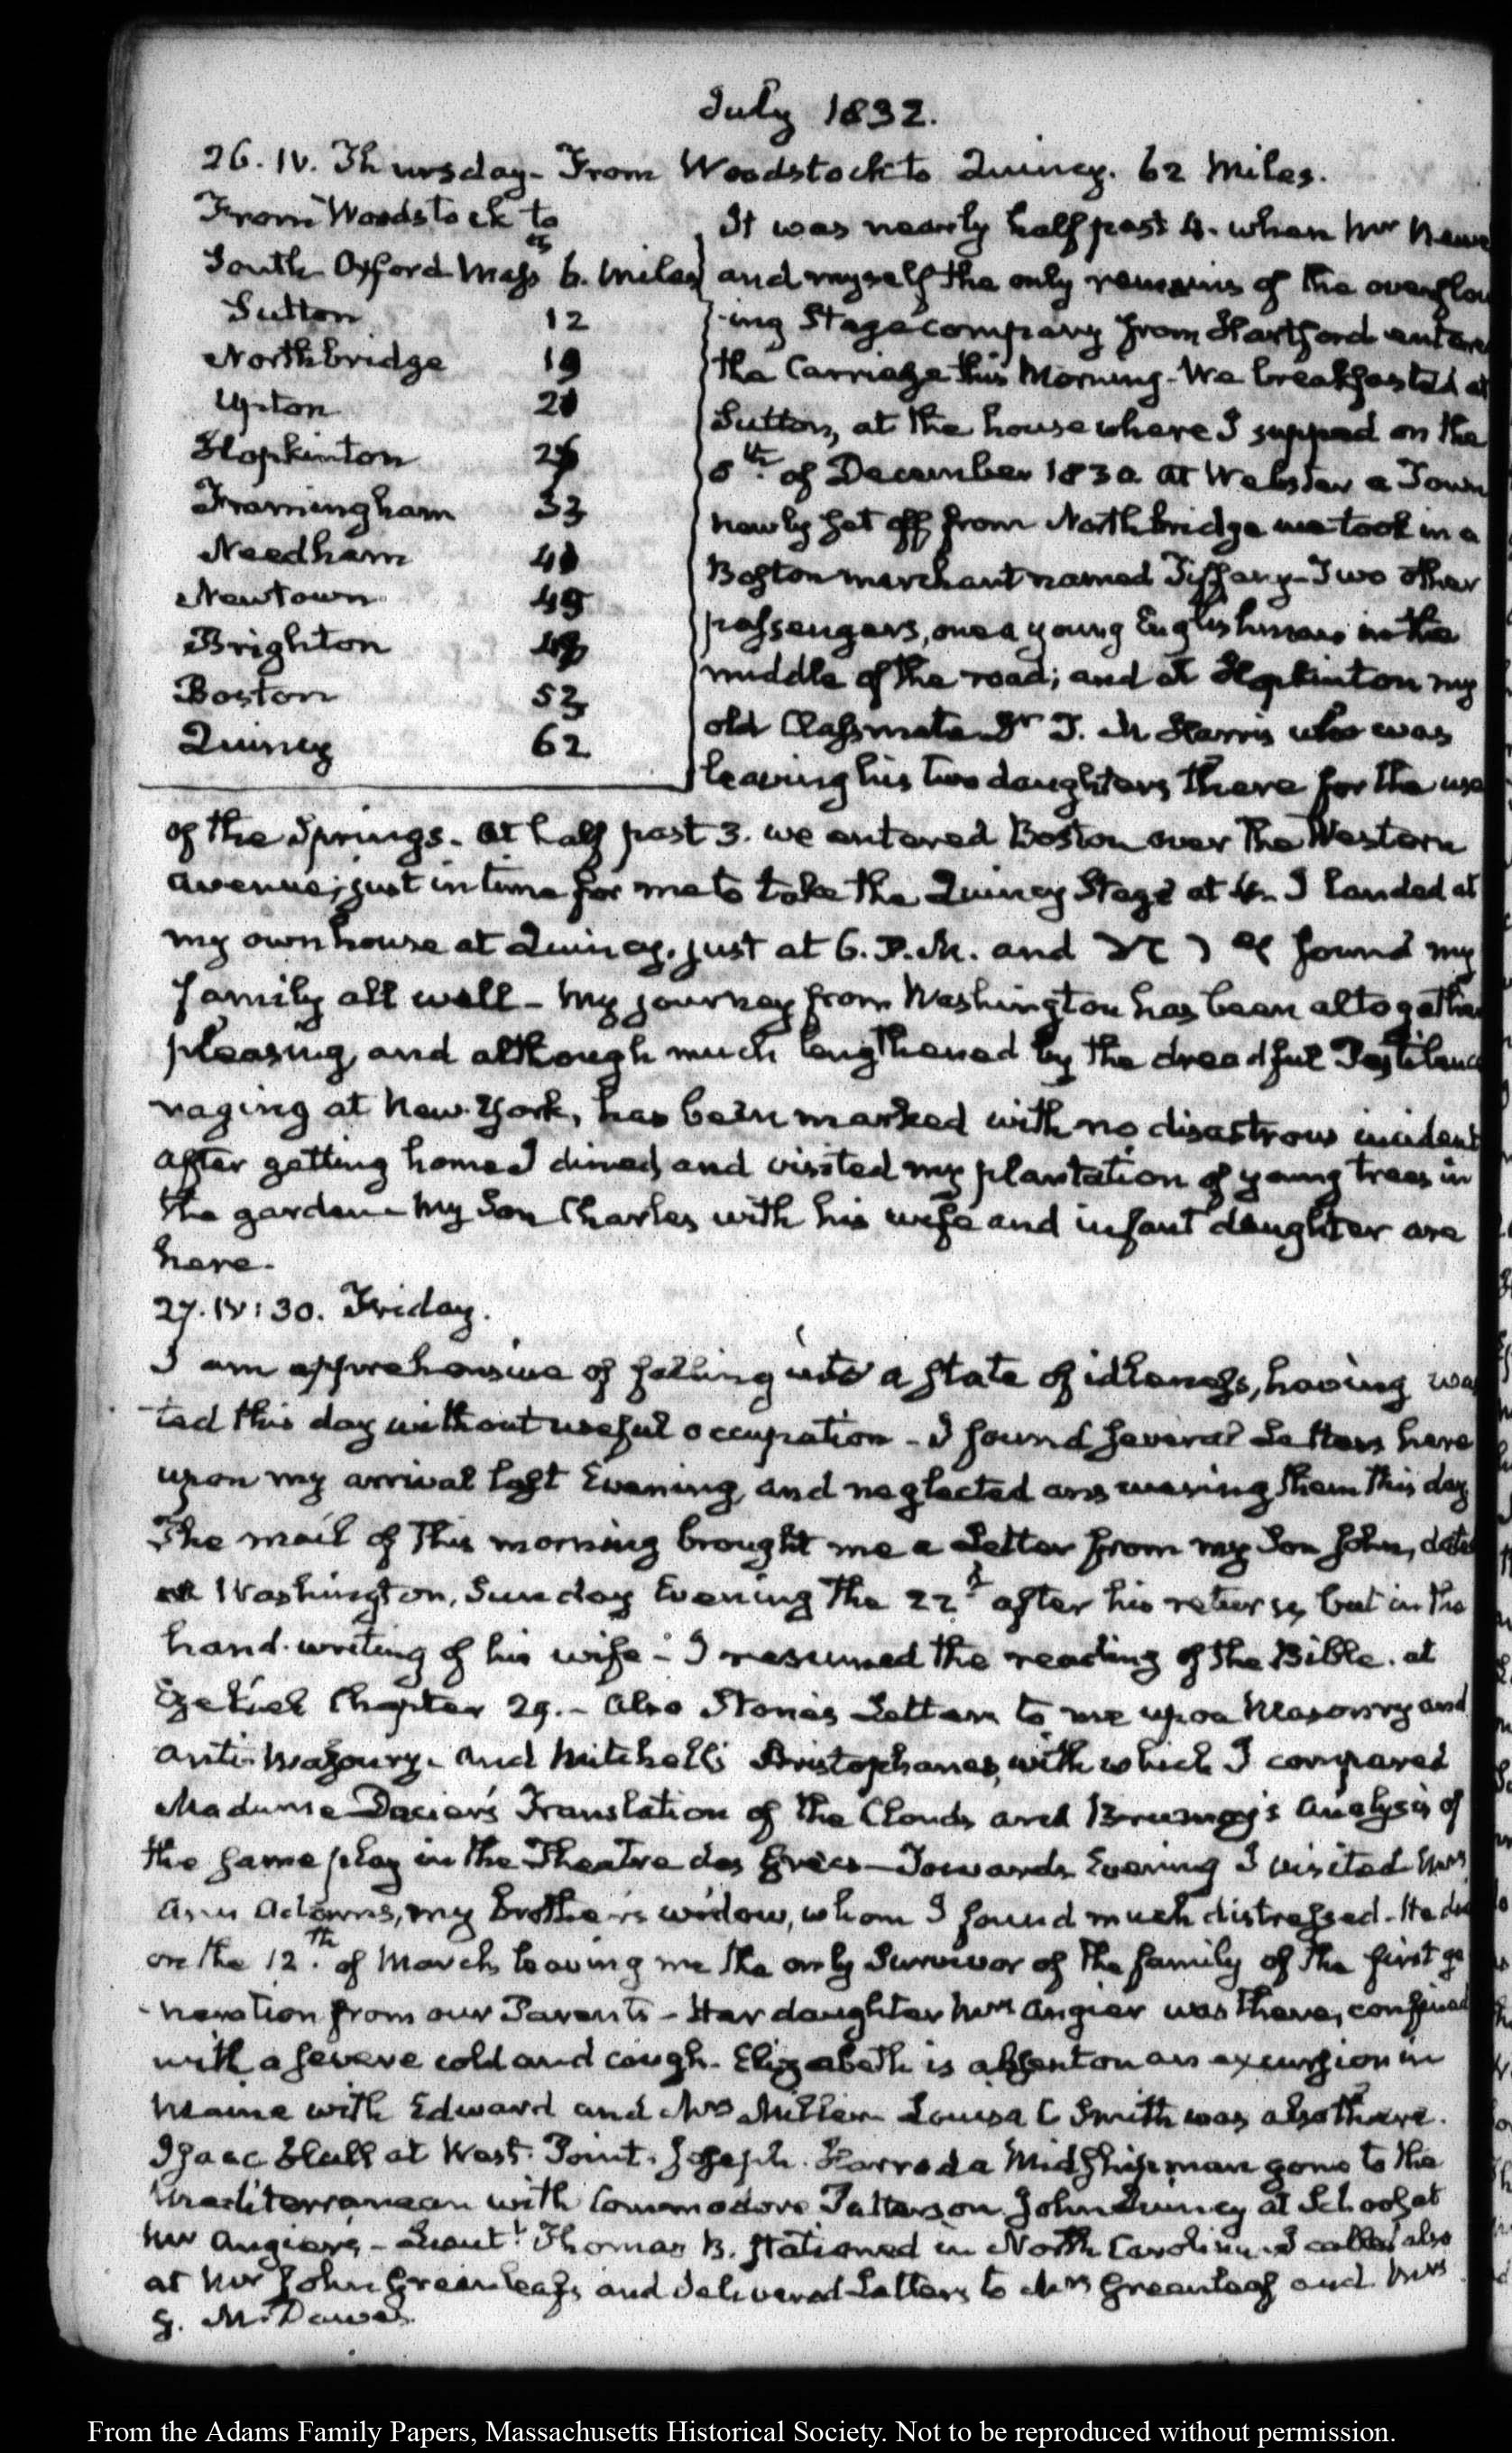 July 1832.
26. IV. Thursday- From Woodstock to Quincy. 62 Miles.
From Woodstock to
South Oxford Mass 6. miles
Sutton 12
Northbridge 19
Upton 21
Hopkinton 26
Framingham 33
Needham 41
Newtown 45
Brighton 48
Boston 53
Quincy 62
It was nearly half past 4. when Mr
and myself the only remains of the overflow
-ing Stage company from Hartford entere
the Carriage this Morning- We breakfasted at
Sutton, at the house where I supped on the
8th. of December 1830. at Webster a Town
newly set off from Northbridge we took in a
Boston merchant named Tiffany- Two other
passengers, one a young Englishman in the
middle of the road; and at Hopkinton my
old Classmate Dr T. M Harris who was
leaving his two daughters there for the use
of the Springs- At half past 3. we entered Boston over the Western
avenue; just in time for me to take the Quincy Stage at 4- I landed at
my own house at Quincy, just at 6. P.M. and found my
family all well- My journey from Washington has been altogether
pleasing, and although much lengthened by the dreadful Pestilence
raging at New-York, has been marked with no disastrous incident
After getting home I dined, and visited my plantation of young trees in
the garden- My Son Charles with his wife and infant daughter are
here-
27. IV:30. Friday.
I am apprehensive of falling into a state of idleness, having was
ted this day without useful occupation- I found several Letters here
upon my arrival last Evening, and neglected answering them this day
The mail of this morning brought me a Letter from my Son John, dated
at Washington, Sunday Evening the 22d after his return, but in the
hand-writing of his wife- I resumed the reading of the Bible. at
Ezekiel Chapter 29.- Also Stone's Letters to me upon Masonry and
anti-Masonry- and Mitchell's Aristophanes, with which I compared
Madame Dacier's Translation of the Clouds and Brumoy's Analysis of
the same play in the Theatre des Grecs- Towards Evening I visited Mrs
Ann Adams, my brother's widow, whom I found much distressed- He died
on the 12th. of March, leaving me the only Survivor of the family of the first ge
-neration from our Parents- Her daughter Mrs Angier was there, confined
with a severe cold and cough- Elizabeth is absent on an excursion in
Maine with Edward and Mrs Miller- Louisa C Smith was also there.
Isaac Hull at West-Point. Joseph Harrod a Midshipman gone to the
Mediterranean with Commodore Patterson. John Quincy at School at
Mr Angier's- Lieutt Thomas B. stationed in North Carolina- I called also
at Mr John Greenleaf's and delivered Letters to Mrs Greenleaf and Mrs
G. M. Dawes.
From the Adams Family Papers, Massachusetts Historical Society. Not to be reproduced without permission.